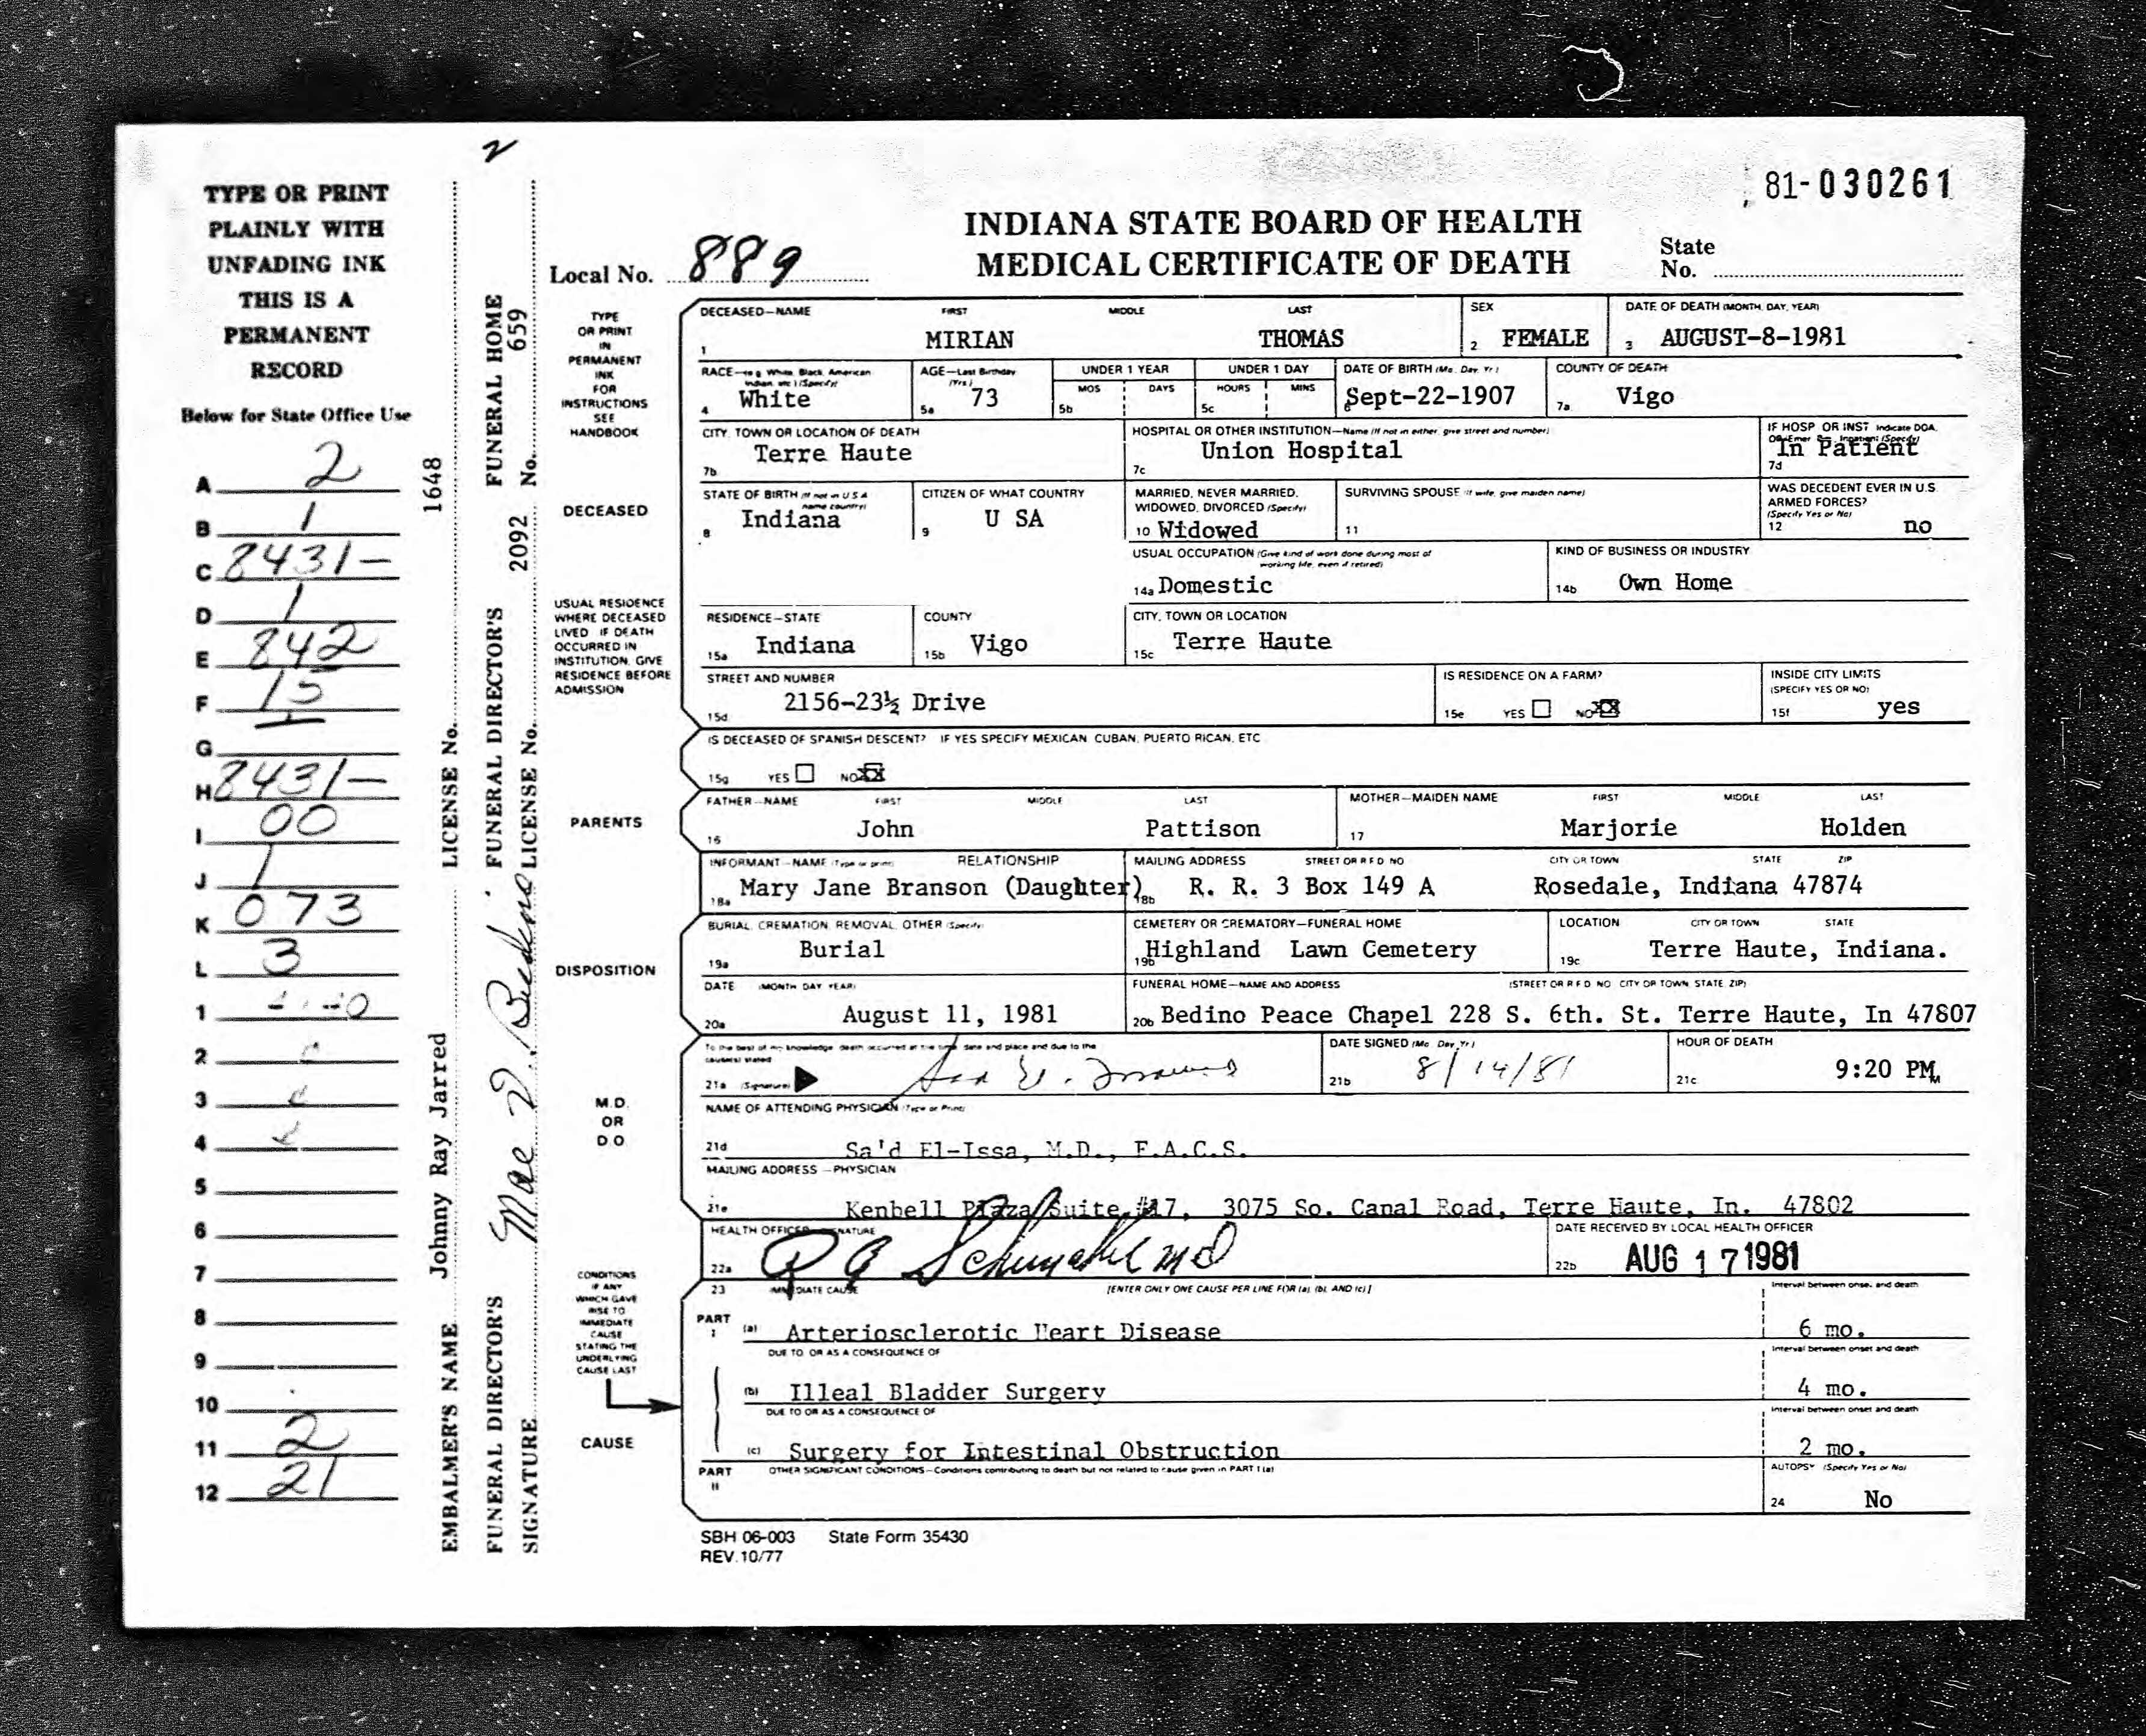 81-030261
INDIANA STATE BOARD OF HEALTH
MEDICAL CERTIFICATE OF DEATH
State
No.
Local No. 889
TYPE OR PRINT
PLAINLY WITH
UNFADING INK
THIS IS A
PERMANENT
RECORD
Below for State Office Use
A 2
B 1
C 8431-
D 1
E 842
F 15
G
H 8431-
I 00
J 1
K 073
L 3
1
2
3
4
5
6
7
8
9
10
11 2
12 21
EMBALMER'S NAME Johnny Ray Jarred LICENSE No. 1648
FUNERAL DIRECTOR'S FUNERAL DIRECTOR'S FUNERAL HOME
SIGNATURE Mae D. Bedino LICENSE No. 2092 No. 659
2
TYPE
OR PRINT
IN
PERMANENT
INK
FOR
INSTRUCTIONS
SEE
HANDBOOK
DECEASED
USUAL RESIDENCE
WHERE DECEASED
LIVED IF DEATH
OCCURRED IN
INSTITUTION, GIVE
RESIDENCE BEFORE
ADMISSION
PARENTS
DISPOSITION
M.D.
OR
D O
CONDITIONS
IF ANY
WHICH GAVE
RISE TO
IMMEDIATE
CAUSE
STATING THE
UNDERLYING
CAUSE LAST
CAUSE
DECEASED—NAME FIRST MIDDLE LAST SEX DATE OF DEATH (MONTH, DAY, YEAR)
1 MIRIAN THOMAS 2 FEMALE 3 AUGUST-8-1981
RACE—(e g White, Black, American Indian, etc ) (Specify) AGE—Last Birthday (Yrs ) UNDER 1 YEAR UNDER 1 DAY DATE OF BIRTH (Mo. Day. Yr ) COUNTY OF DEATH
MOS DAYS HOURS MINS
4 White 5a 73 5b 5c 6 Sept-22-1907 7a Vigo
CITY, TOWN OR LOCATION OF DEATH HOSPITAL OR OTHER INSTITUTION—Name (If not in either, give street and number) IF HOSP OR INST Indicate DOA,
7b Terre Haute 7c Union Hospital 7d In Patient
STATE OF BIRTH (If not in U S A name country) CITIZEN OF WHAT COUNTRY MARRIED, NEVER MARRIED, WIDOWED, DIVORCED (Specify) SURVIVING SPOUSE (If wife, give maiden name) WAS DECEDENT EVER IN U.S. ARMED FORCES? (Specify Yes or No)
8 Indiana 9 U SA 10 Widowed 11 12 no
USUAL OCCUPATION (Give kind of work done during most of working life, even if retired) KIND OF BUSINESS OR INDUSTRY
14a Domestic 14b Own Home
RESIDENCE—STATE COUNTY CITY, TOWN OR LOCATION
15a Indiana 15b Vigo 15c Terre Haute
STREET AND NUMBER IS RESIDENCE ON A FARM? INSIDE CITY LIMITS (SPECIFY YES OR NO)
15d 2156-23½ Drive 15e YES NO XX 15f yes
IS DECEASED OF SPANISH DESCENT? IF YES SPECIFY MEXICAN, CUBAN, PUERTO RICAN, ETC
15g YES NO XX
FATHER—NAME FIRST MIDDLE LAST MOTHER—MAIDEN NAME FIRST MIDDLE LAST
16 John Pattison 17 Marjorie Holden
INFORMANT—NAME (Type or print) RELATIONSHIP MAILING ADDRESS STREET OR R F D NO CITY OR TOWN STATE ZIP
18a Mary Jane Branson (Daughter) 18b R. R. 3 Box 149 A Rosedale, Indiana 47874
BURIAL, CREMATION, REMOVAL, OTHER (Specify) CEMETERY OR CREMATORY—FUNERAL HOME LOCATION CITY OR TOWN STATE
19a Burial 19b Highland Lawn Cemetery 19c Terre Haute, Indiana.
DATE (MONTH DAY YEAR) FUNERAL HOME—NAME AND ADDRESS (STREET OR R F D NO CITY OR TOWN, STATE, ZIP)
20a August 11, 1981 20b Bedino Peace Chapel 228 S. 6th. St. Terre Haute, In 47807
To the best of my knowledge death occurred at the time date and place and due to the cause(s) stated DATE SIGNED (Mo Day Yr) HOUR OF DEATH
21a (Signature) 21b 8/14/81 21c 9:20 PM M
NAME OF ATTENDING PHYSICIAN (Type or Print)
21d Sa'd El-Issa, M.D., F.A.C.S.
MAILING ADDRESS—PHYSICIAN
21e Kenbell Plaza Suite #17, 3075 So. Canal Road, Terre Haute, In. 47802
HEALTH OFFICER SIGNATURE DATE RECEIVED BY LOCAL HEALTH OFFICER
22a 22b AUG 17 1981
23 IMMEDIATE CAUSE [ENTER ONLY ONE CAUSE PER LINE FOR (a), (b), AND (c)] Interval between onset and death
PART I (a) Arteriosclerotic Heart Disease 6 mo.
DUE TO, OR AS A CONSEQUENCE OF Interval between onset and death
(b) Illeal Bladder Surgery 4 mo.
DUE TO OR AS A CONSEQUENCE OF Interval between onset and death
(c) Surgery for Intestinal Obstruction 2 mo.
PART II OTHER SIGNIFICANT CONDITIONS—Conditions contributing to death but not related to cause given in PART I (a) AUTOPSY (Specify Yes or No)
24 No
SBH 06-003 State Form 35430
REV. 10/77